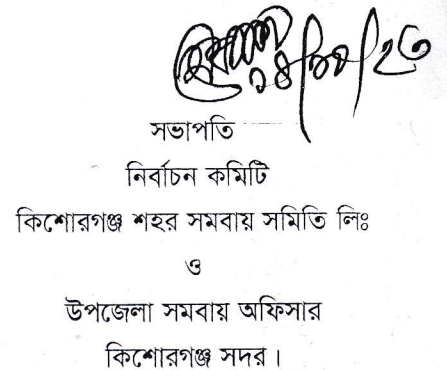 সভাপতি
নির্বাচন কমিটি
কিশোরগঞ্জ শহর সমবায় সমিতি লিঃ
ও
উপজেলা সমবায় অফিসার
কিশোরগঞ্জ সদর।